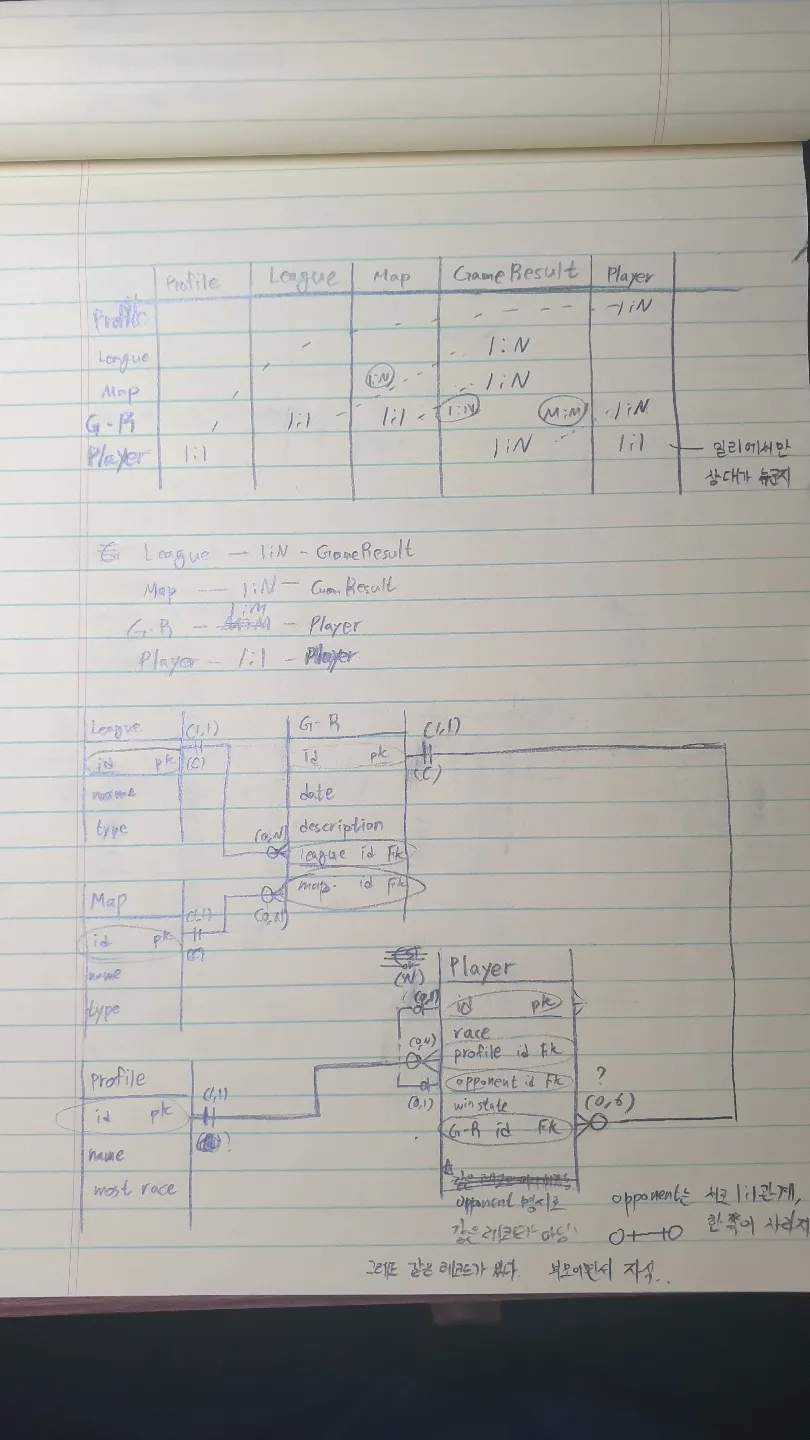 Profile League Map GameResult Player
Profile 1:N
League 1:N
Map 1:N 1:N
G-R 1:1 1:1 1:N M:M 1:N
Player 1:1 1:N 1:1 밀리에서만
상대가 누군지
League — 1:N - GameResult
Map — 1:N — GameResult
1:M
G-R — — Player
Player — 1:1 - Player
League (1,1) G-R (1,1)
id pk (C) id pk (C)
name date
type (0,N) description
league id Fk
Map map id Fk
(1,1) (0,N)
id pk
name
type
(N) Player
id pk
race
(0,N) profile id Fk
Profile opponent id Fk ?
(1,1) (0,1) win state (0,6)
id pk ? G-R id Fk
name
most race
opponent 명시로 opponent는 서로 1:1 관계,
같은 레코드가 아님 한쪽이 사라지
그래도 같은 레코드가 있다. 부모이면서 자식..